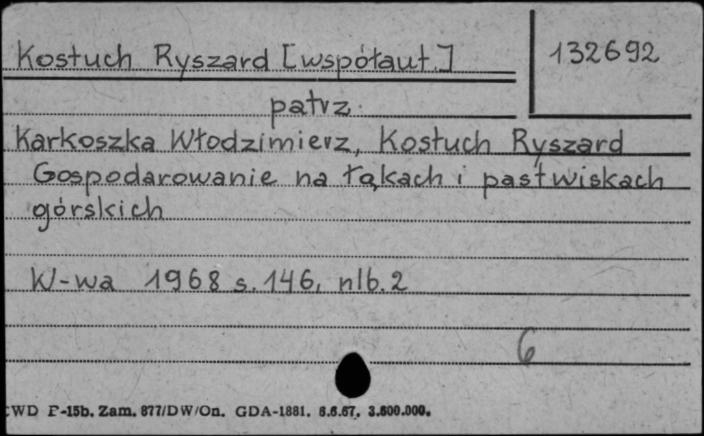 Kostuch Ryszard [współaut.]
132692
patrz
Karkoszka Włodzimierz, Kostuch Ryszard
Gospodarowanie na łąkach i pastwiskach
górskich
W-wa 1968 s. 146, nlb. 2
6
CWD P-15b. Zam. 877/DW/On. GDA-1881. 8.6.67. 3.600.000.